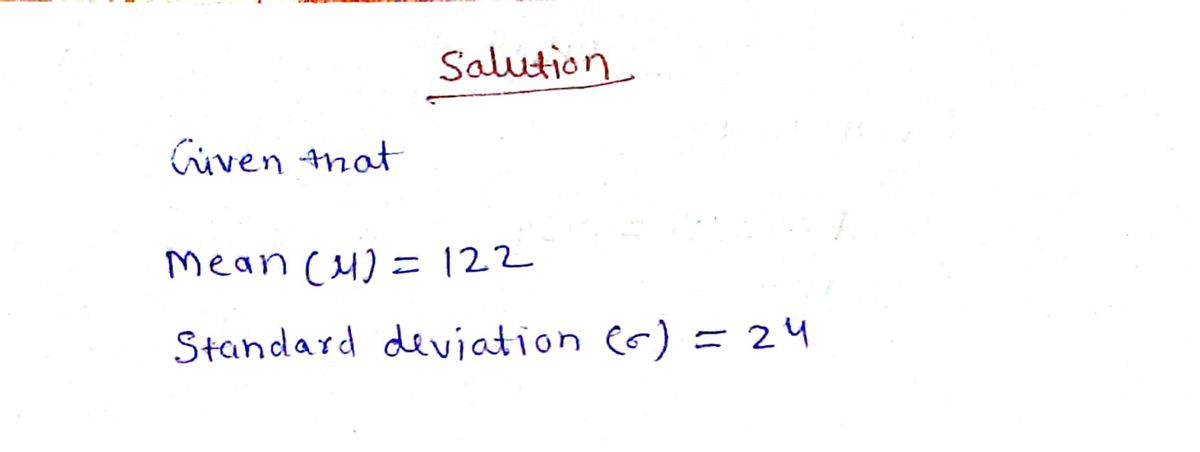 Salution
Given that
Mean (μ) = 122
Standard deviation (σ) = 24